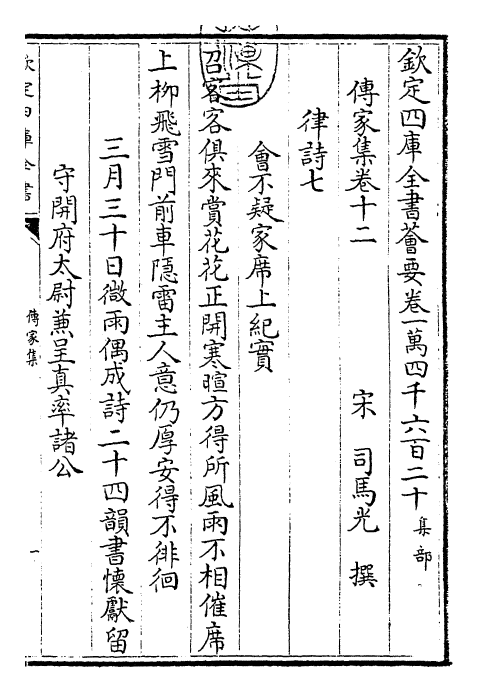 欽定四庫全書薈要卷一萬四千六百二十集部
傳家集卷十二
宋司馬光撰
律詩七
會不疑家席上紀實
召客客俱來賞花花正開寒暄方得所風雨不相催席
上柳飛雪門前車隱雷主人意仍厚安得不徘徊
三月三十日微雨偶成詩二十四韻書懷獻留
守開府太尉兼呈真率諸公
欽定四庫全書
傳家集
一